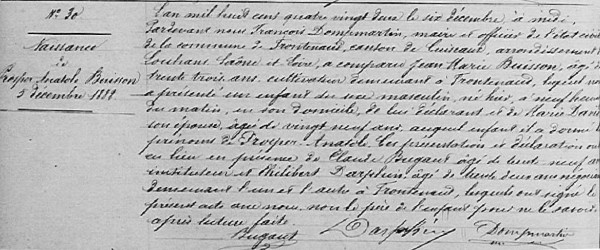 N° 30
Naissance
de
Prosper Anatole Buisson
5 décembre 18
L'an mil huit cent quatre vingt douze le six décembre à midi
Pardevant nous François Dompmartin, maire et officier de l'état civil
de la commune de Frontenaud, canton de Cuiseaux, arrondissement
Louhans, Saône et Loire, a comparu Jean Marie Buisson, âgé de
trente trois ans, cultivateur demeurant à Frontenaud, lequel nous
a présenté un enfant du sexe masculin, né hier, à neuf heures
du matin, en son domicile, de lui déclarant et de Marie
son épouse, âgée de vingt neuf ans, auquel enfant il a donné les
prénoms de Prosper-Anatole. Les présentation et déclaration ont
eu lieu en présence de Claude Bugaut âgé de trente neuf ans
instituteur et Philibert âgé de trente deux ans
demeurant l'un et l'autre à Frontenaud, lesquels ont signé le
présent acte avec nous, non le père de l'enfant pour ne le savoir
après lecture faite
Bugaut Dompmartin